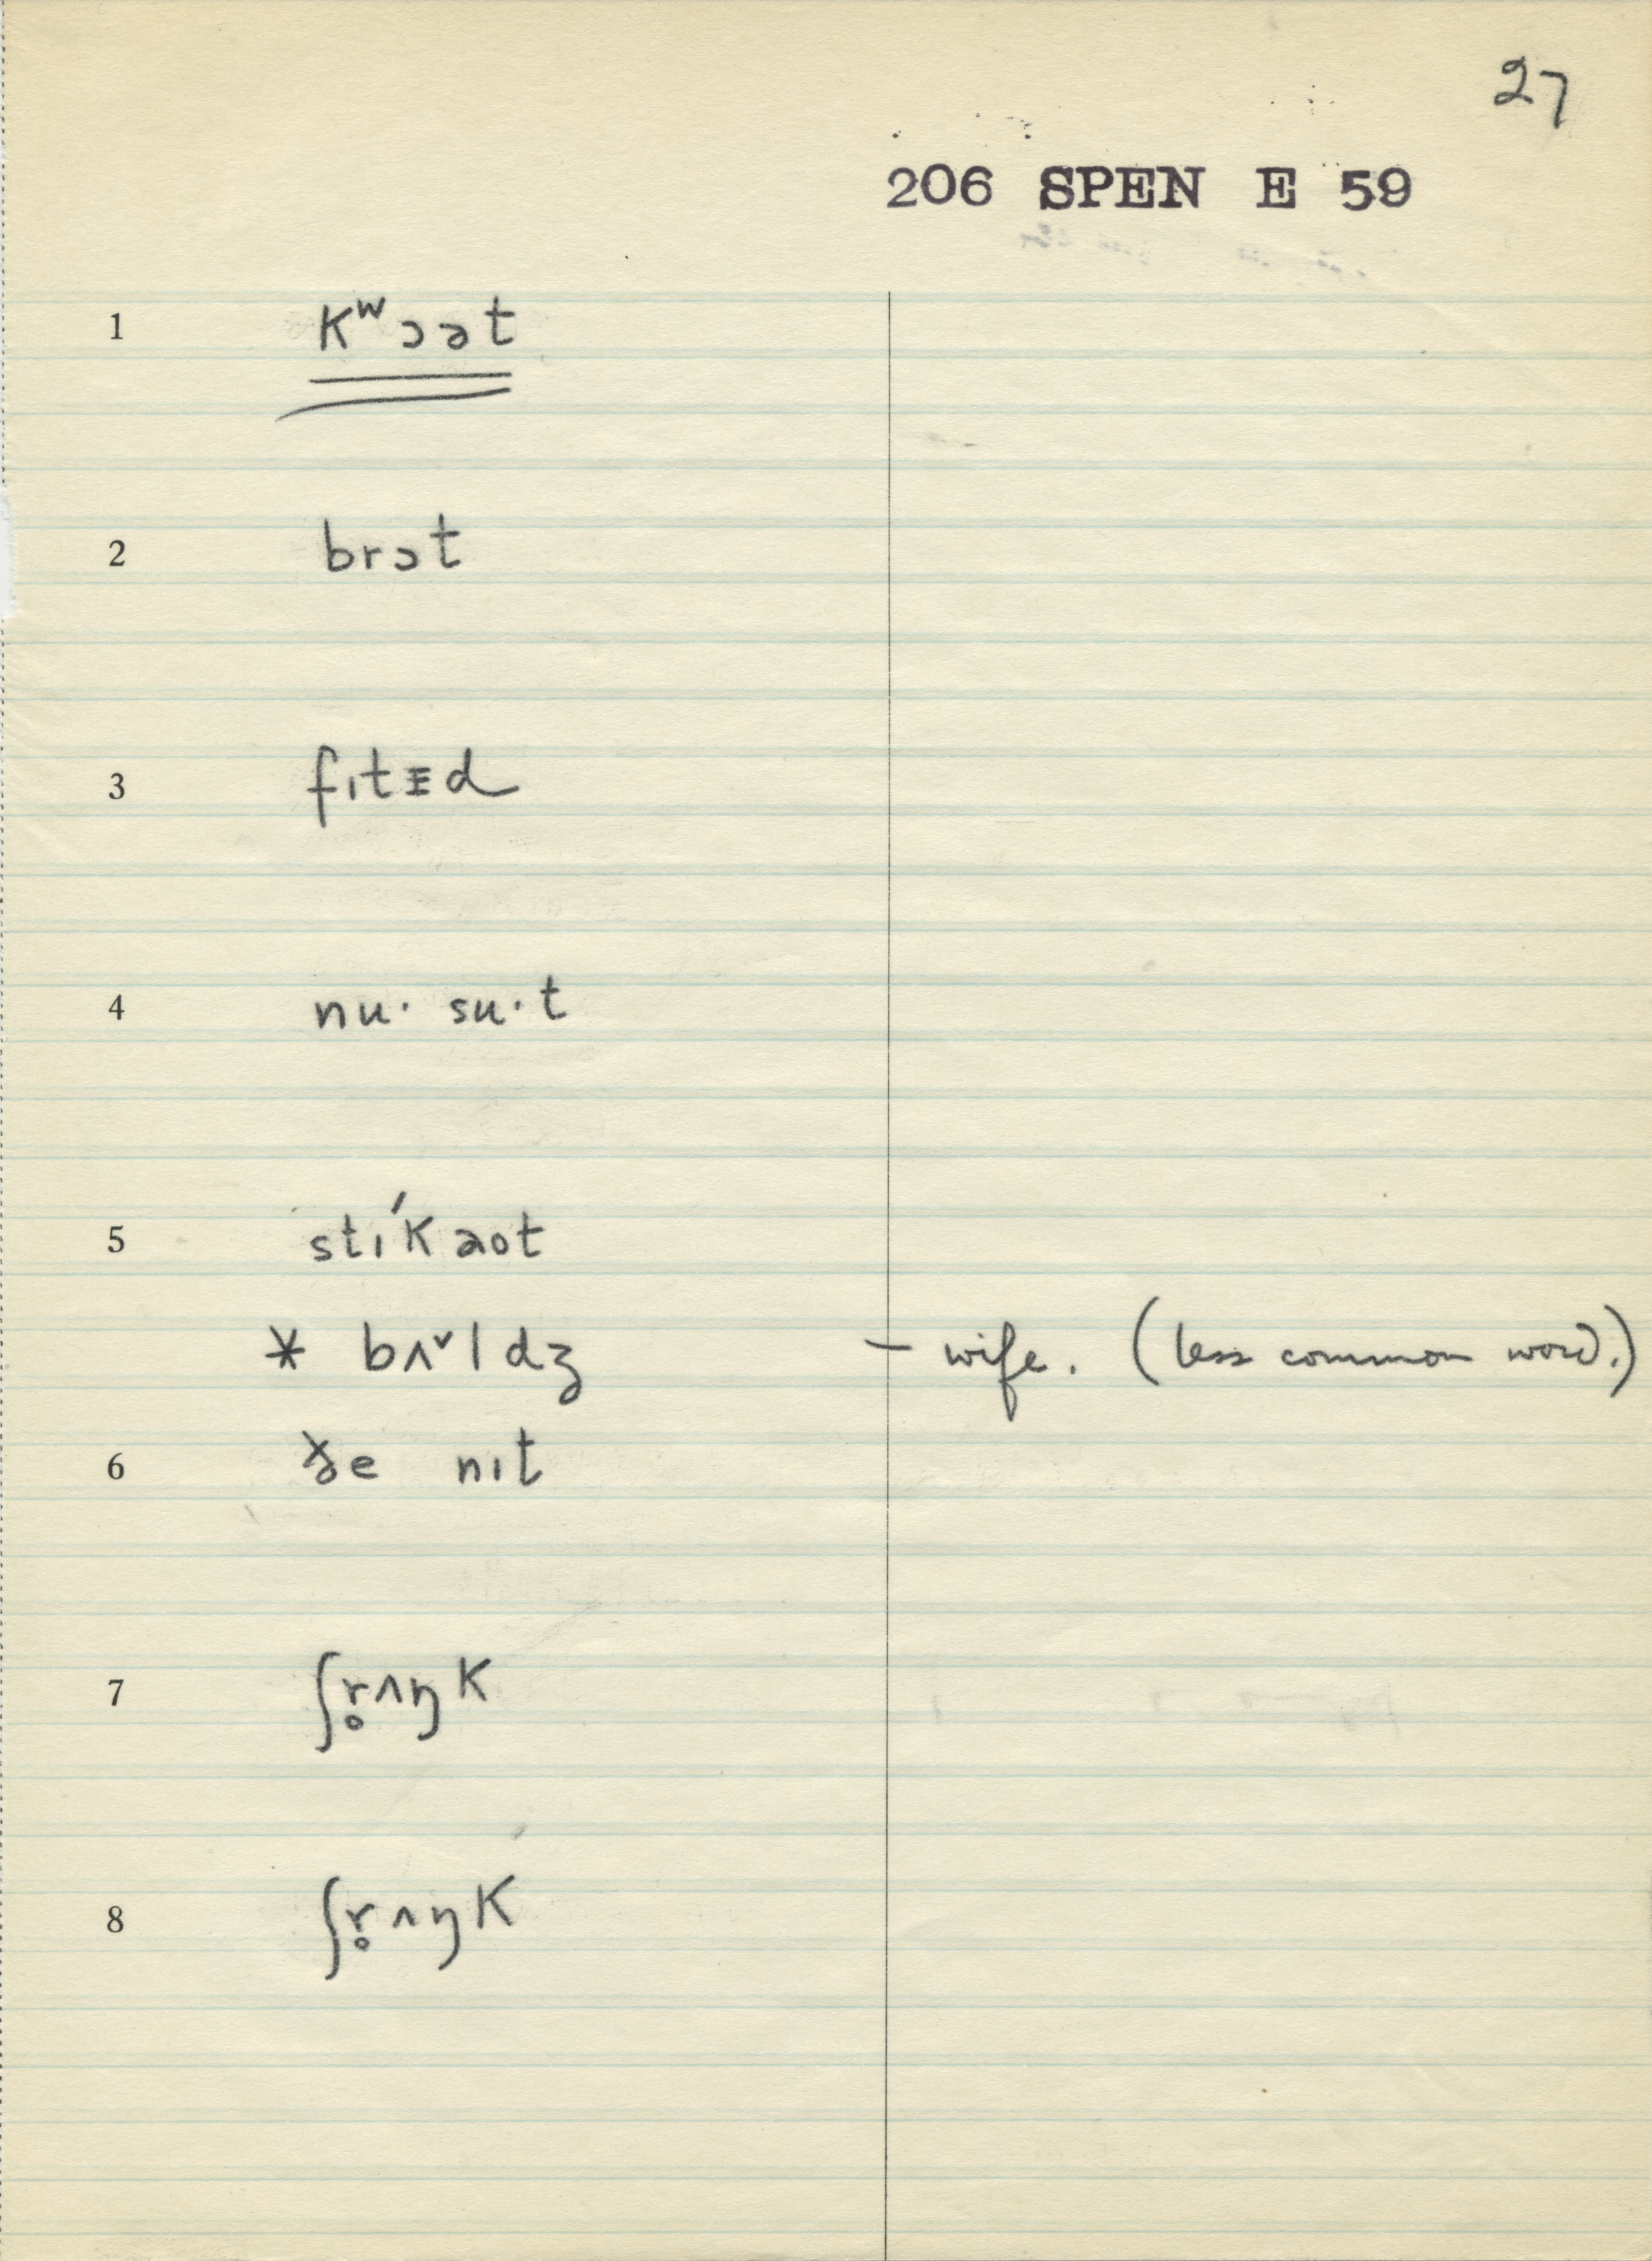 27
206 SPEN E 59
1 Kʷɔət
2 brɔt
3 fıtɪd
4 nu· su·t
5 stı́Kaot
* bʌ˅ldʒ – wife. (less common word.)
6 ɤe nıt
7 ʃr̥ʌŋK
8 ʃr̥ʌŋK